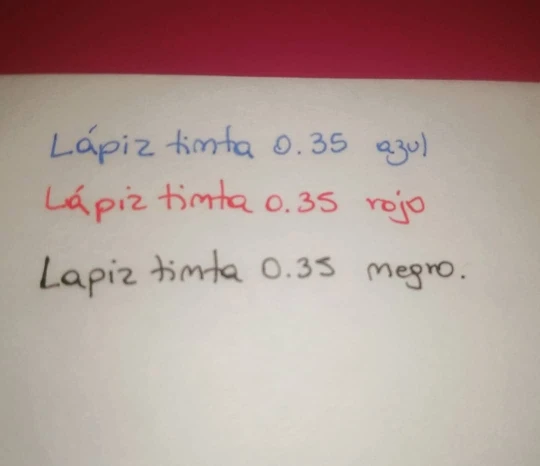 Lápiz tinta 0.35 azul
Lápiz tinta 0.35 rojo
Lapiz tinta 0.35 negro.